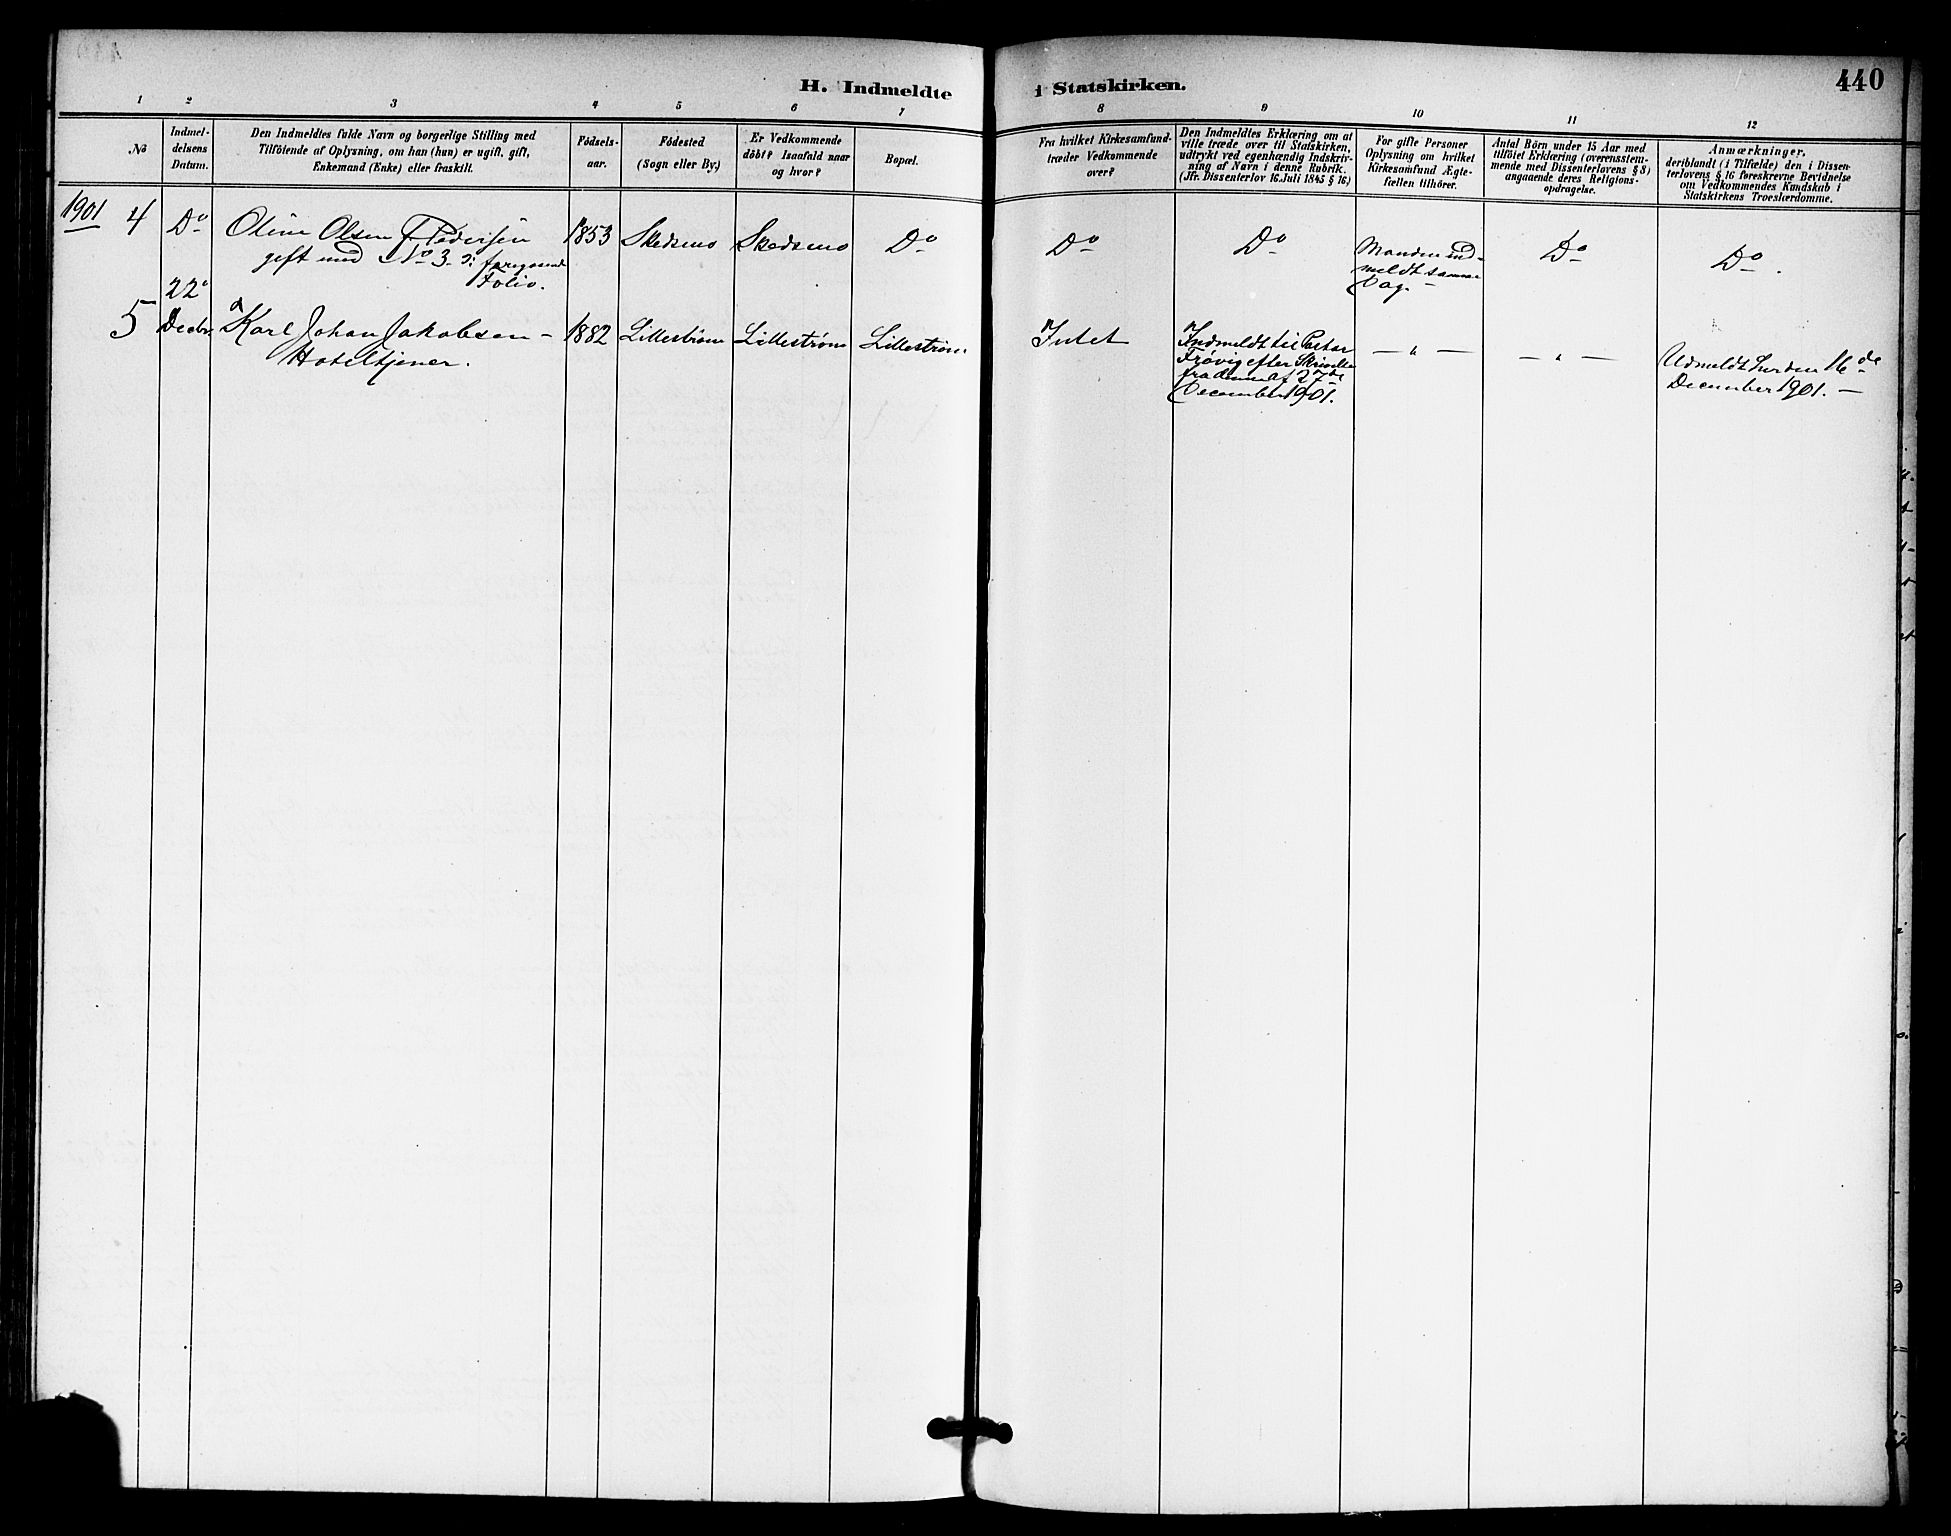 440
H. Indmeldte i Statskirken.
1 2 3 4 5 6 7 8 9 10 11 12
No
Indmel-
delsens
Datum.
Den Indmeldtes fulde Navn og borgerlige Stilling med
Tilföiende af Oplysning, om han (hun) er ugift, gift,
Enkemand (Enke) eller fraskilt.
Födsels-
aar.
Födested
(Sogn eller By.)
Er Vedkommende
döbt? Isaafald naar
og hvor?
Bopæl.
Fra hvilket Kirkesamfund
træder Vedkommende
over?
Den Indmeldtes Erklæring om at
ville træde over til Statskirken,
udtrykt ved egenhændig Indskriv-
ning af Navn i denne Rubrik.
(Jfr. Dissenterlov 16. Juli 1845 § 16)
For gifte Personer
Oplysning om hvilket
Kirkesamfund Ægte-
fællen tilhører.
Antal Börn under 15 Aar med
tilföiet Erklæring (overensstem-
mende med Dissenterlovens § 8)
angaaende deres Religions-
opdragelse.
Anmærkninger,
deriblandt (i Tilfælde) den i Dissen-
terlovens § 16 foreskrevne Bevidnelse
om Vedkommendes Kundskab i
Statskirkens Troeslærdomme.
1901
4
Do
Oline Olsen F. Pedersen
gift med No 3. i foregaaende
Folio.
1853
Skedsmo
Skedsmo
Do
Do
Do
Manden ind-
meldt samme
Dag. —
Do
Do.
5
22
Decbr.
Karl Johan Jakobsen —
Hoteltjener.
1882
Lillestrøm
Lillestrøm
Lillestrøm
Intet
Indmeldt til Pastor
Frøvig efter Skrivelse
fra denne af 27de
December 1901.
— " —
— " —
Udmeldt her den 16de
December 1901. —